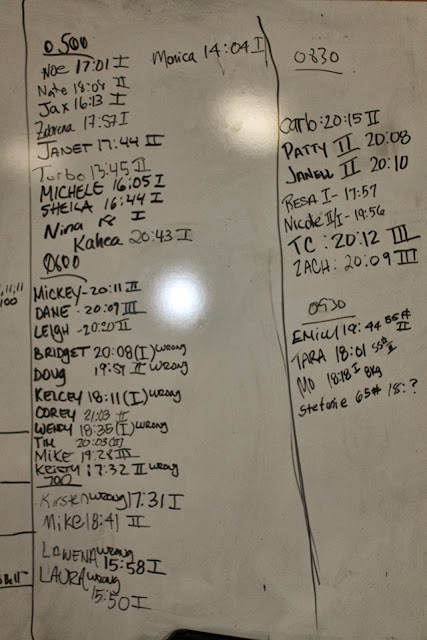 0500
Noe 17:01 I
Monica 14:04 I
Nate 18:08 II
Jax 16:13 I
Zabrena 17:57 I
JANET 17:44 II
Turbo 13:45 II
MICHELE 16:05 I
SHEILA 16:44 I
Nina I
Kahea 20:43 I
0600
MICKEY - 20:11 II
DANE - 20:09 III
LEIGH - 20:20 II
BRIDGET 20:08 (I) WRONG
DOUG 19:57 II WRONG
KELCEY 18:11 (I) WRONG
COREY 21:03 II
WENDY 18:35 (I) WRONG
TIM 20:03 (II)
MIKE 19:28 III
KRISTY 17:32 II WRONG
700
Kirsten wrong 17:31 I
Mike 18:41 II
LOWENA wrong
15:58 I
LAURA wrong
15:50 I
0830
Carlo: 20:15 II
PATTY II 20:08
JANELL II 20:10
RESA I - 17:57
Nicole II/I - 19:56
TC : 20:12 III
ZACH : 20:09 III
0930
EMILY 19:44 55# II
TARA 18:01 55# I
MO 18:18 I 8kg
Stefanie 65# 18:?
11,11
100
Bell